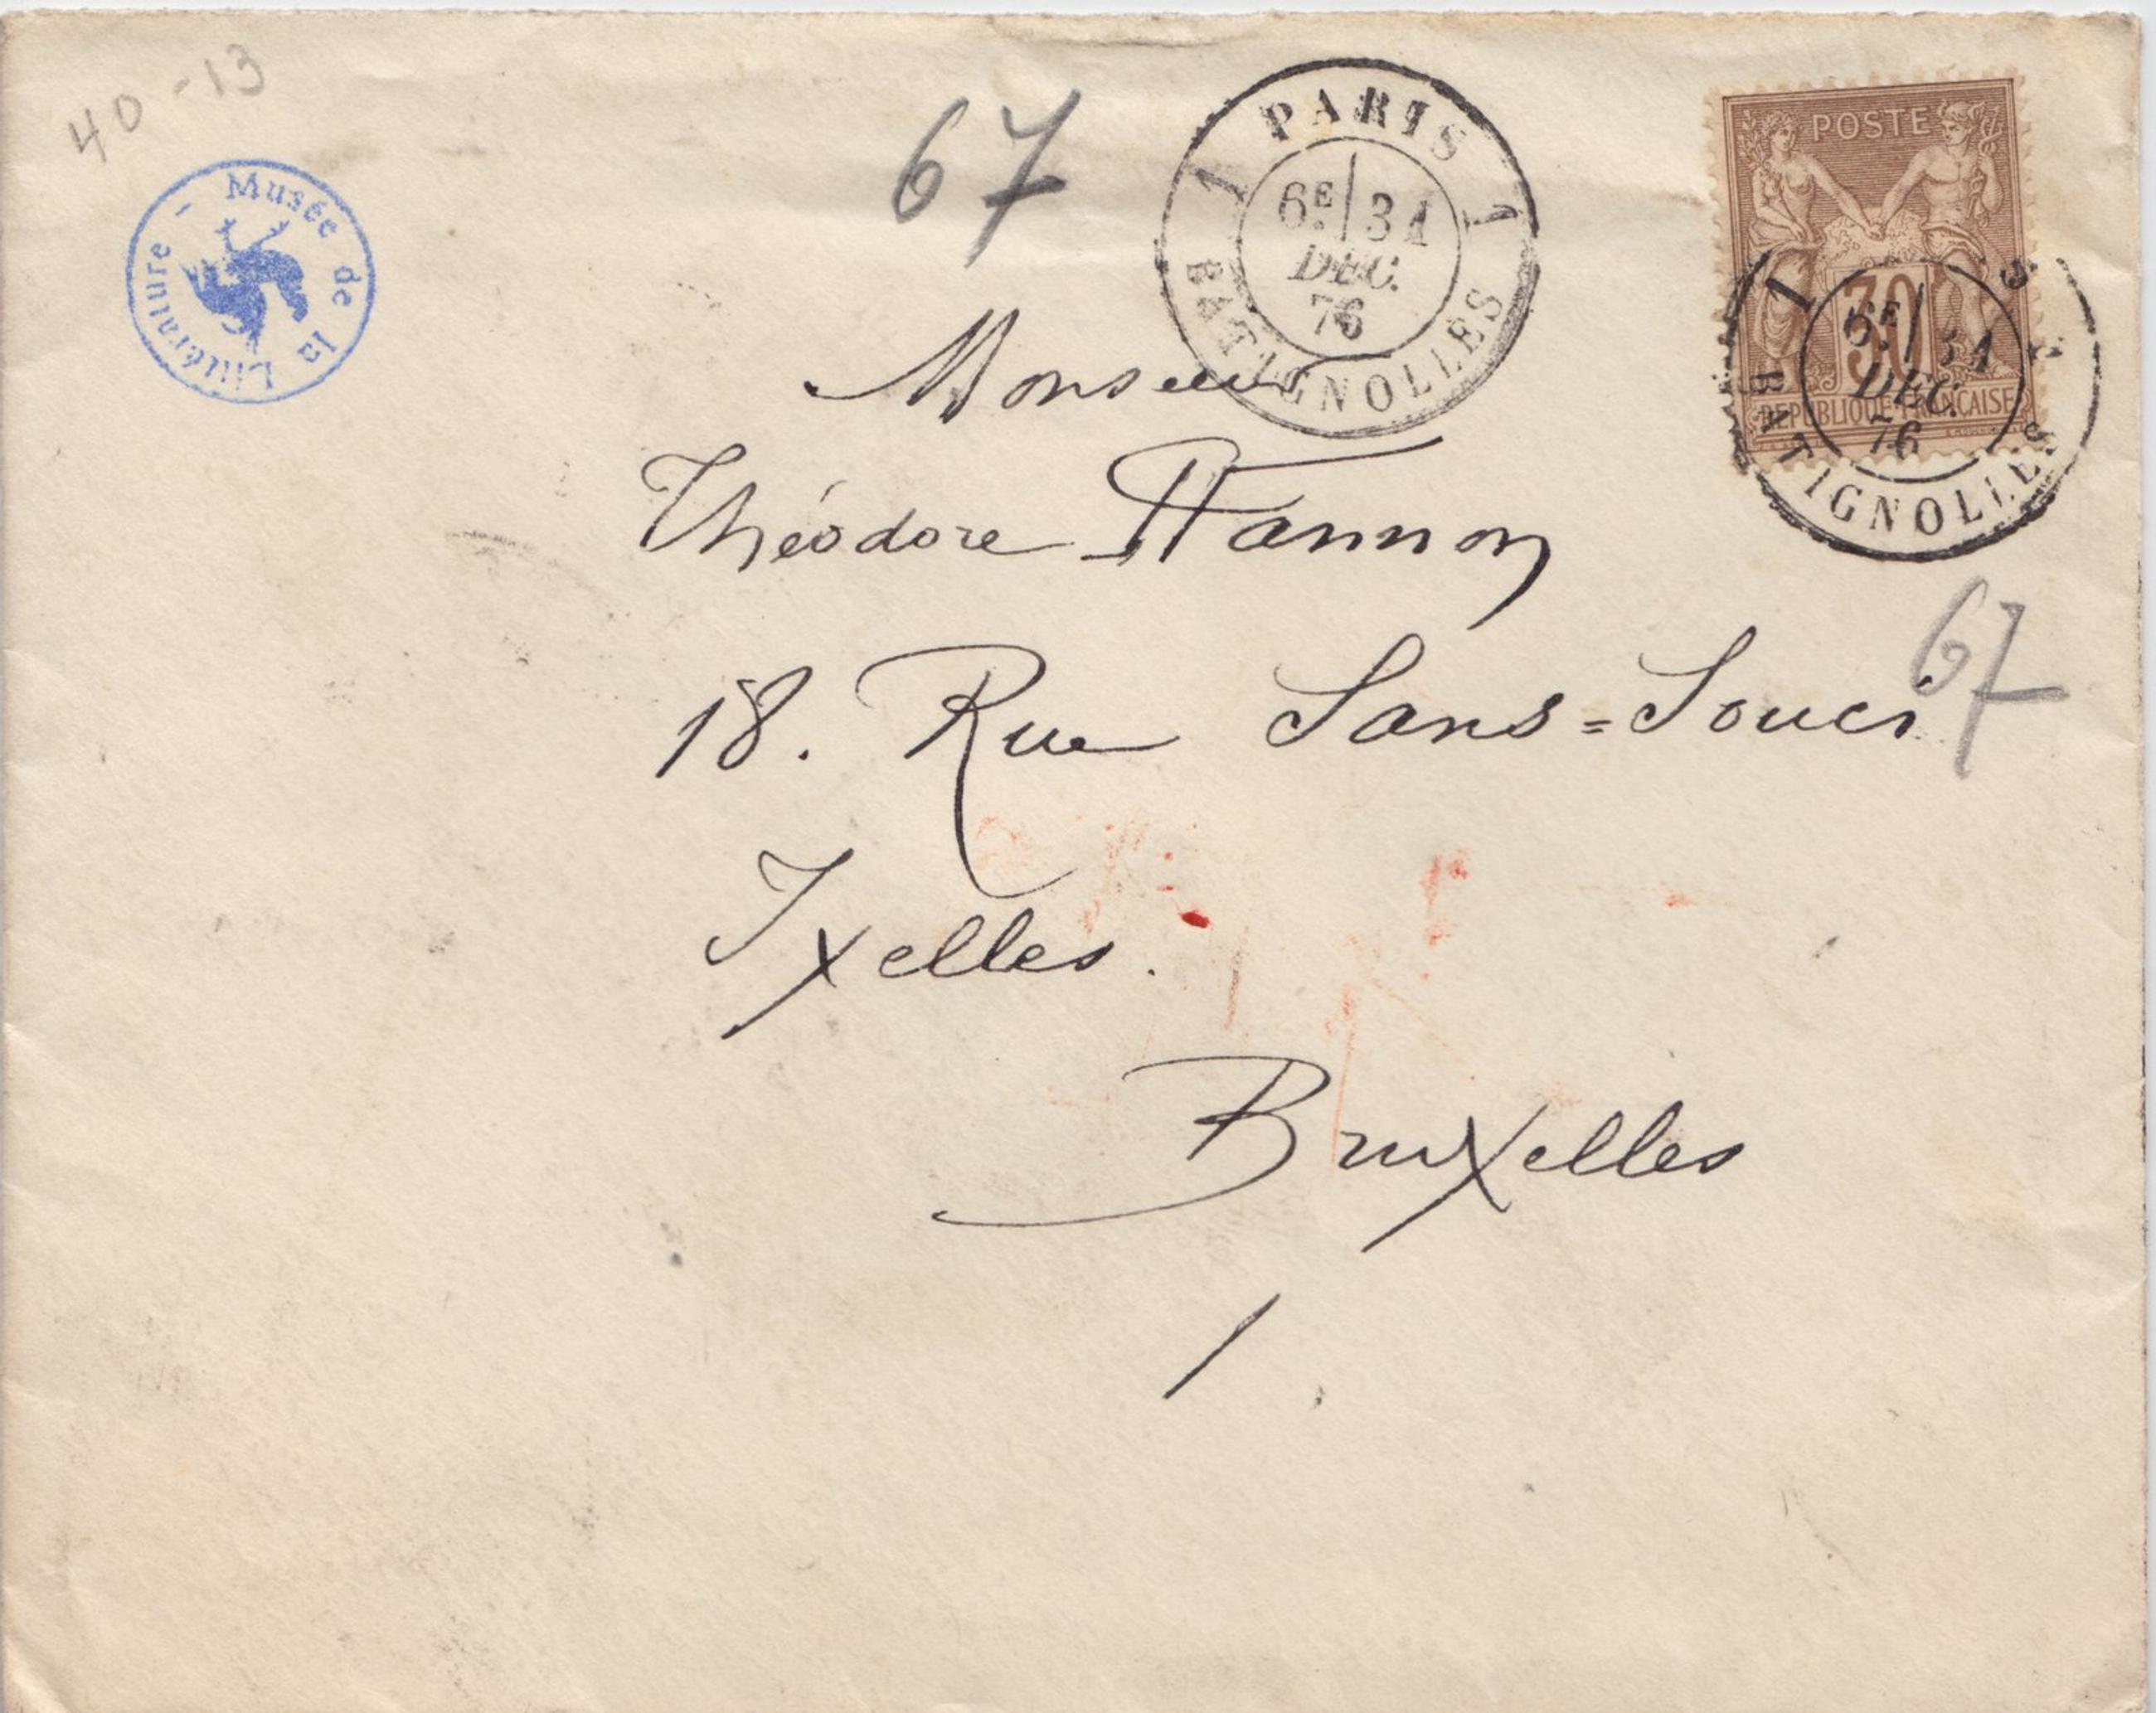 40-13
Musée de la Littérature -
67
PARIS
1 1
6E/31
DEC.
76
BATIGNOLLES
POSTE
30
REPUBLIQUE FRANÇAISE
1
6E/31
DEC.
76
BATIGNOLLES
Monsieur
Théodore Hannon
67
18. Rue Sans=Souci
Ixelles.
Bruxelles
/